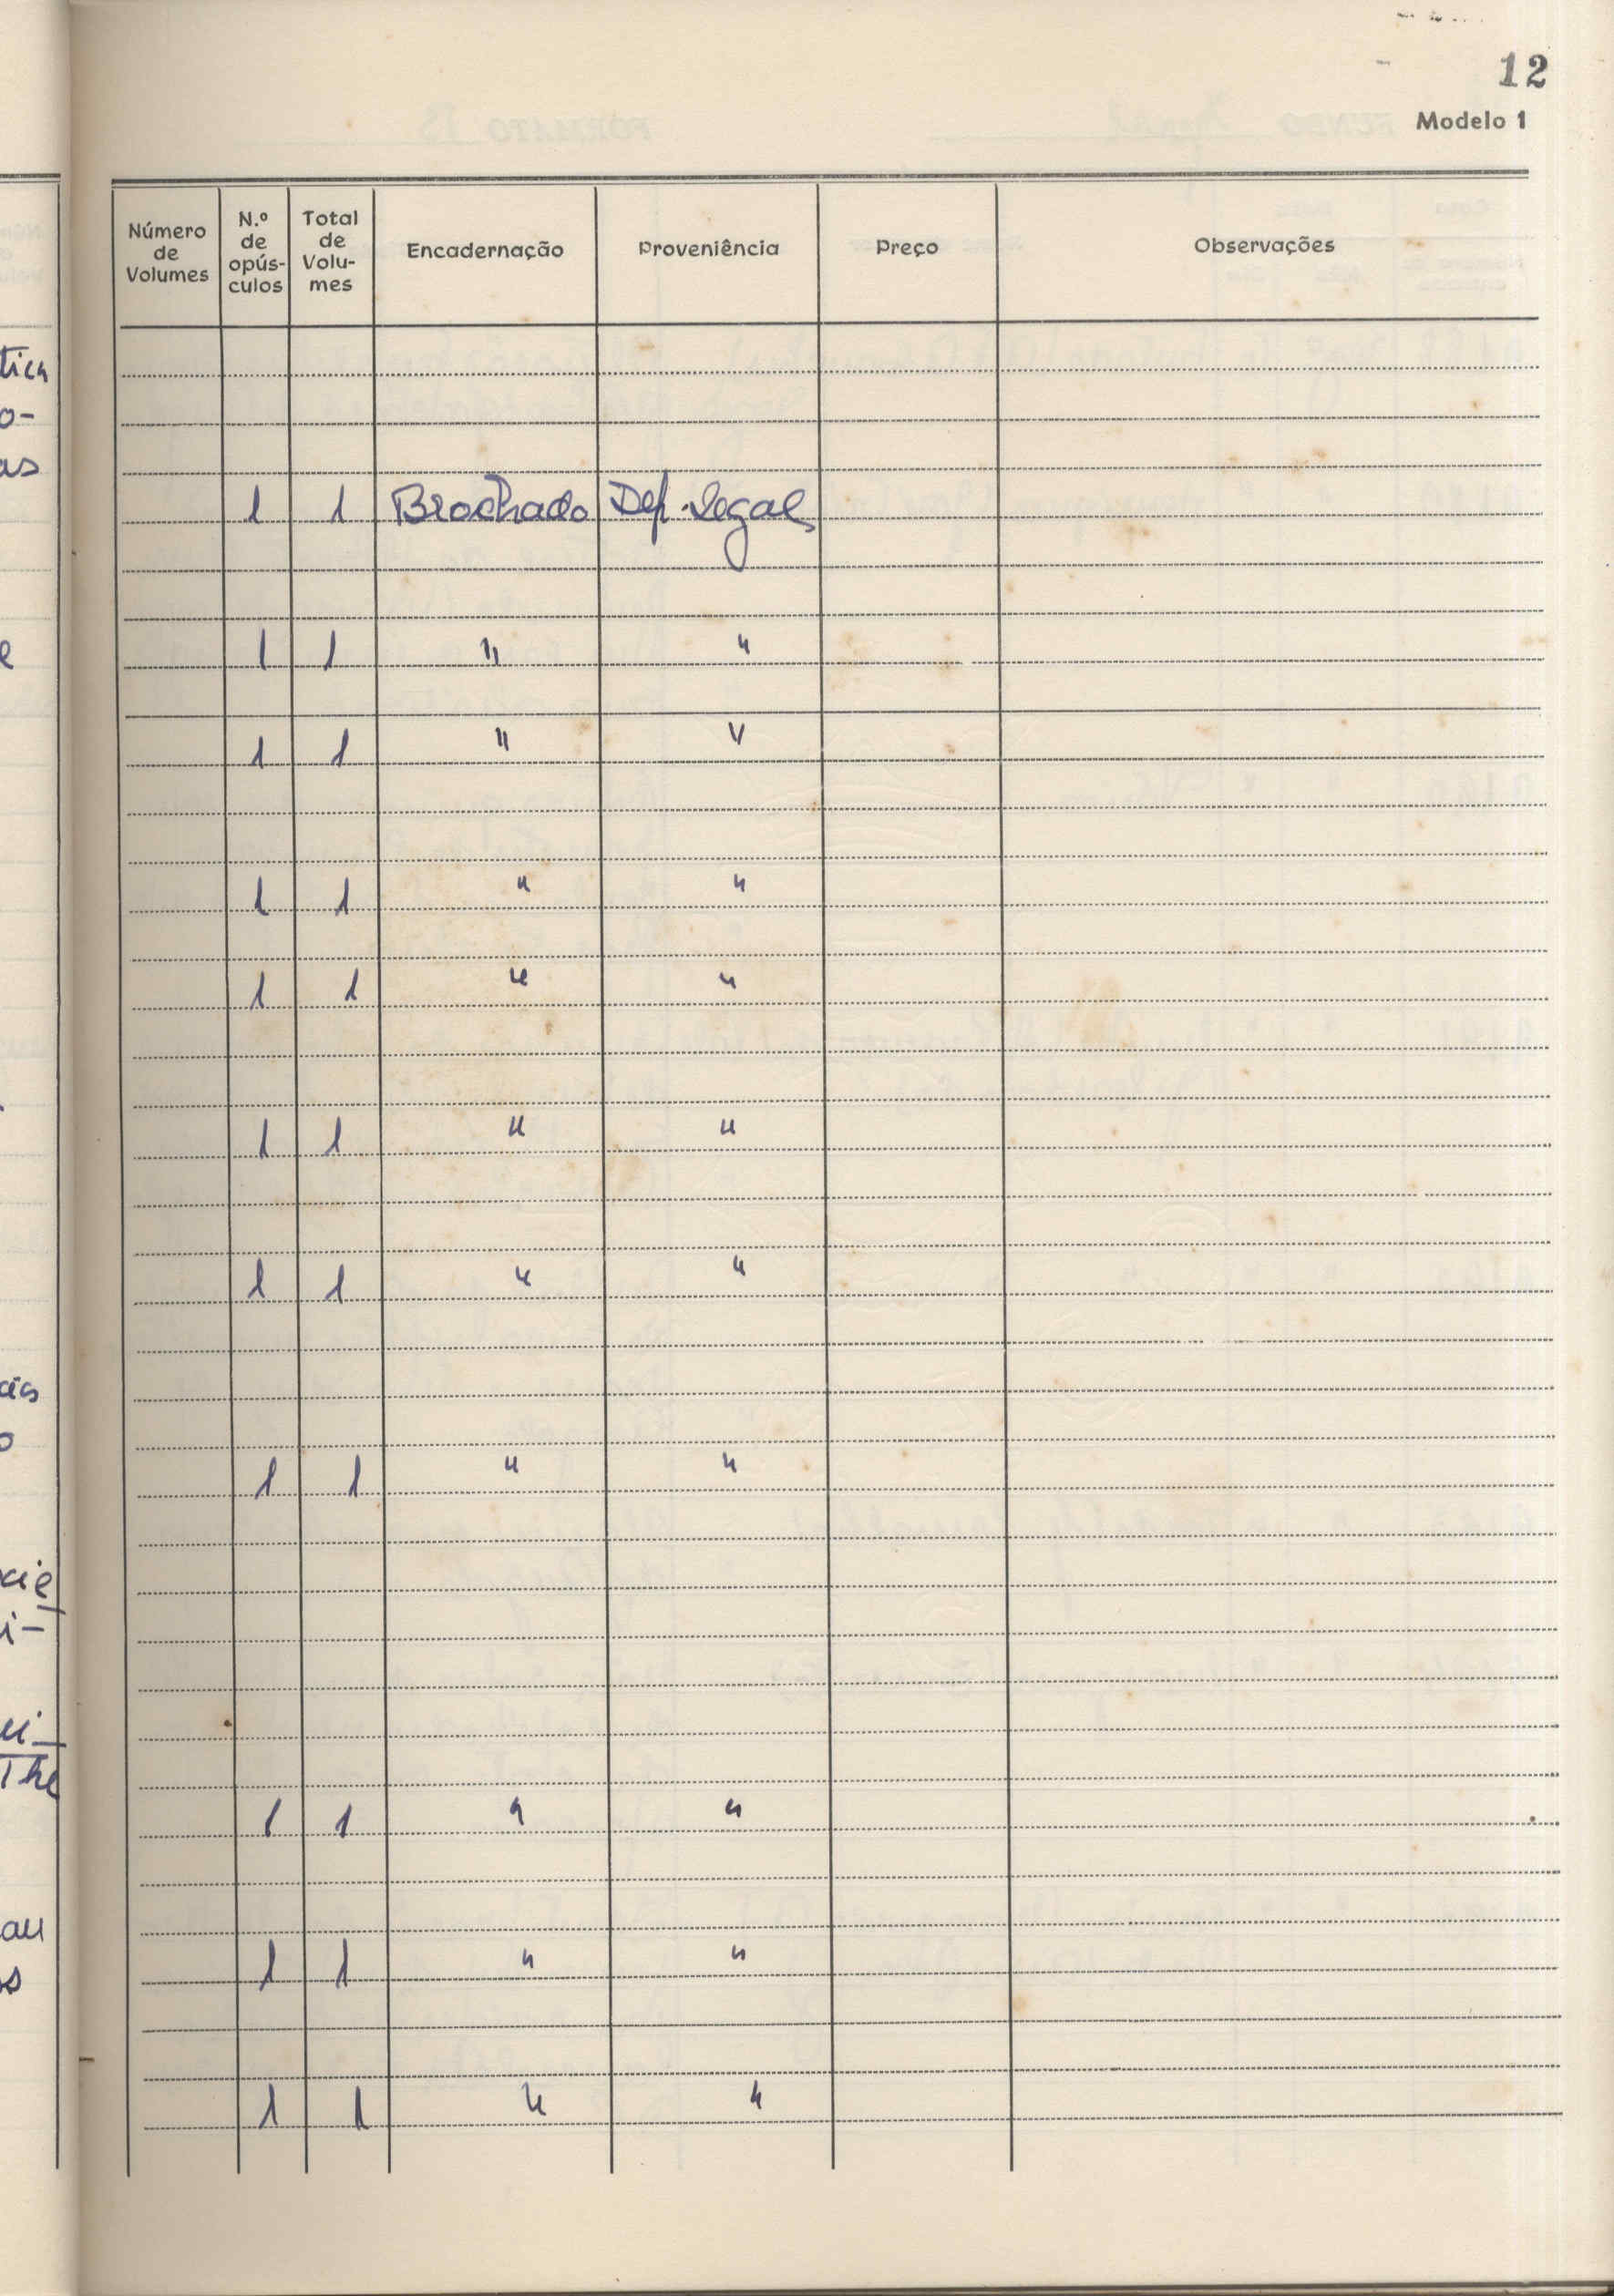 12
Modelo 1
Número de Volumes | N.º de opús-culos | Total de Volu-mes | Encadernação | Proveniência | Preço | Observações
tica
o-
as
1 1 Brochado Dep. Legal
e
1 1 " "
1 1 " "
1 1 " "
1 1 " "
1 1 " "
1 1 " "
o
1 1 " "
i-
The
1 1 " "
au
os
1 1 " "
1 1 " "